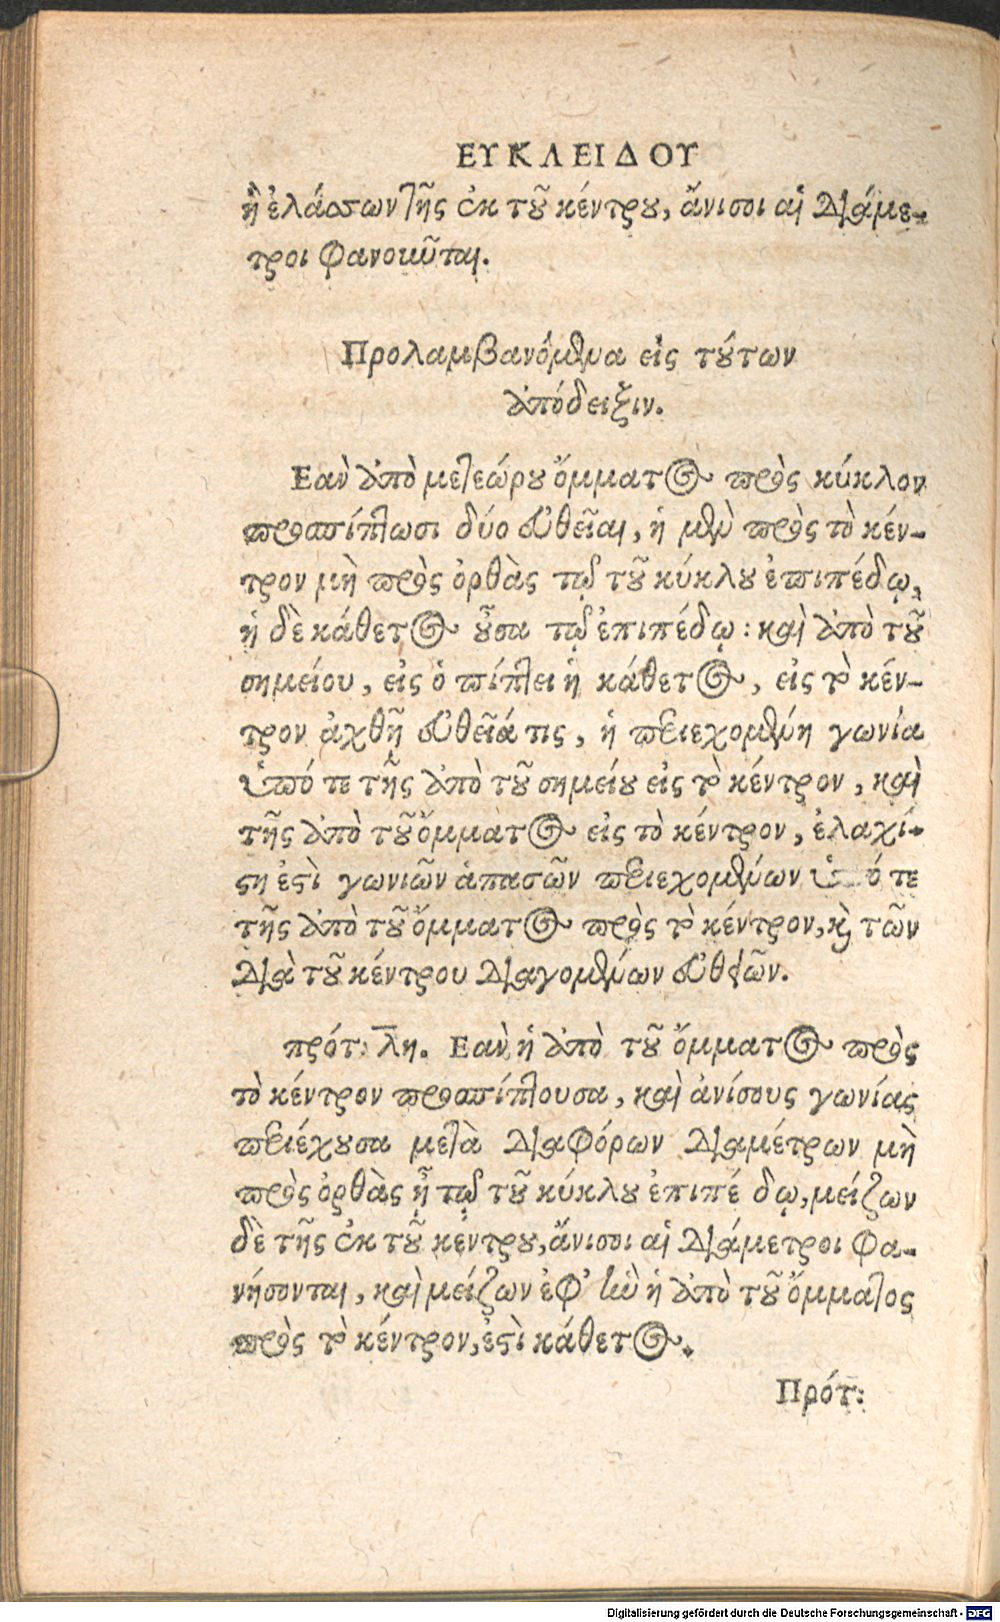 ΕΥΚΛΕΙΔΟΥ
ἢ ἐλάσσων τῆς ἐκ τοῦ κέντρου, ἄνισοι αἱ διάμε-
τροι φανοῦνται.
Προλαμβανόμενα εἰς τούτων
ἀπόδειξιν.
Εαὰν ἀπὸ μετεώρου ὄμματος πρὸς κύκλον
προσπίπτωσι δύο εὐθεῖαι, ἡ μὲν πρὸς τὸ κέν-
τρον μὴ πρὸς ὀρθὰς τῷ τοῦ κύκλου ἐπιπέδῳ,
ἡ δὲ κάθετος οὖσα τῷ ἐπιπέδῳ: καὶ ἀπὸ τοῦ
σημείου, εἰς ὁ πίπτει ἡ κάθετος, εἰς τὸ κέν-
τρον ἀχθῇ εὐθεῖά τις, ἡ περιεχομένη γωνία
ὑπό τε τῆς ἀπὸ τοῦ σημείου εἰς τὸ κέντρον, καὶ
τῆς ἀπὸ τοῦ ὄμματος εἰς τὸ κέντρον, ἐλαχί-
στη ἐστὶ γωνιῶν ἁπασῶν περιεχομένων ὑπό τε
τῆς ἀπὸ τοῦ ὄμματος πρὸς τὸ κέντρον, καὶ τῶν
διὰ τοῦ κέντρου διαγομένων εὐθειῶν.
πρότ: λη. Εαὰν ἡ ἀπὸ τοῦ ὄμματος πρὸς
τὸ κέντρον προσπίπτουσα, καὶ ἀνίσους γωνίας
περιέχουσα μετὰ διαφόρων διαμέτρων μὴ
πρὸς ὀρθὰς ᾖ τῷ τοῦ κύκλου ἐπιπέ δῳ, μείζων
δὲ τῆς ἐκ τοῦ κέντρου, ἄνισοι αἱ διάμετροι φα-
νήσονται, καὶ μείζων ἐφ' ἣν ἡ ἀπὸ τοῦ ὄμματος
πρὸς τὸ κέντρον, ἐστὶ κάθετος.
Πρότ:
Digitalisierung gefördert durch die Deutsche Forschungsgemeinschaft - DFG